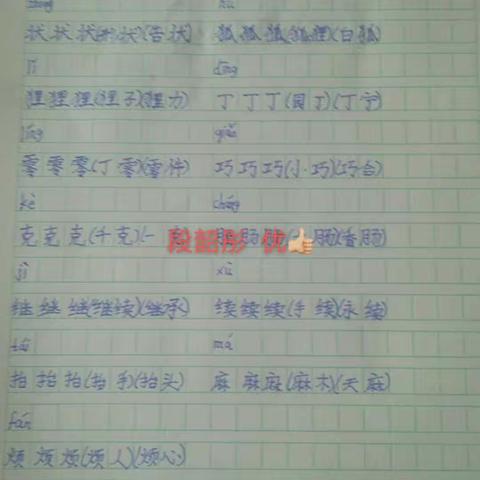 状 状 状(形状)(告状) 狐 狐 狐(狐狸)(白狐)
lí dīng
狸 狸 狸(狸子)(狸力) 丁 丁 丁(园丁)(丁宁)
líng qiǎo
零 零 零(丁零)(零件) 巧 巧 巧(小巧)(巧合)
kè cháng
克 克 克(千克)(一 肠 肠 肠)(香肠)
段韶彤 优👍
jì xù
继 继 继(继续)(继承) 续 续 续(手续)(永续)
tái má
抬 抬 抬(抬手)(抬头) 麻 麻 麻(麻木)(天麻)
fán
烦 烦 烦(烦人)(烦心)